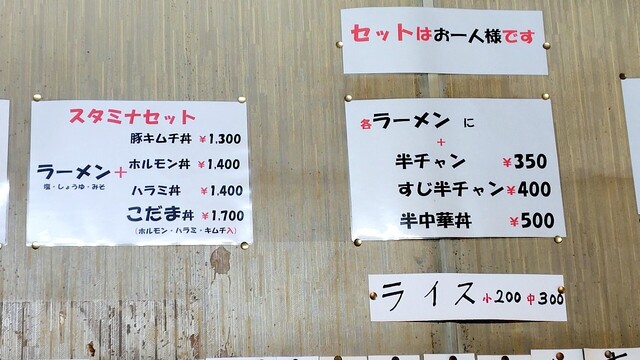 セットはお一人様です
スタミナセット
ラーメン+
塩・しょうゆ・みそ
豚キムチ丼 ¥1.300
ホルモン丼 ¥1.400
ハラミ丼 ¥1.400
こだま丼 ¥1.700
(ホルモン・ハラミ・キムチ入)
各ラーメン に
+
半チャン ¥350
すじ半チャン ¥400
半中華丼 ¥500
ライス 小200 中300